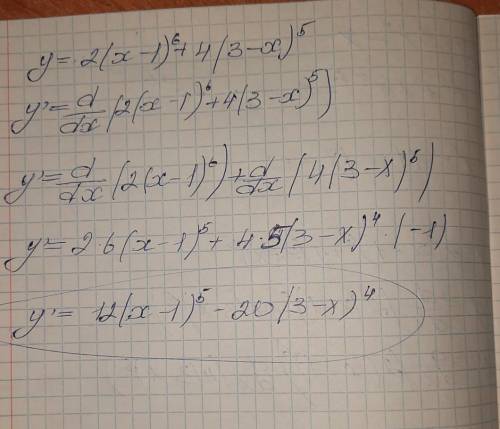 y = 2(x-1)⁶+4(3-x)⁵
y' = d/dx (2(x-1)⁶+4(3-x)⁵)
y' = d/dx (2(x-1)⁶) + d/dx (4(3-x)⁵)
y' = 2·6(x-1)⁵ + 4·5(3-x)⁴·(-1)
y' = 12(x-1)⁵ - 20(3-x)⁴